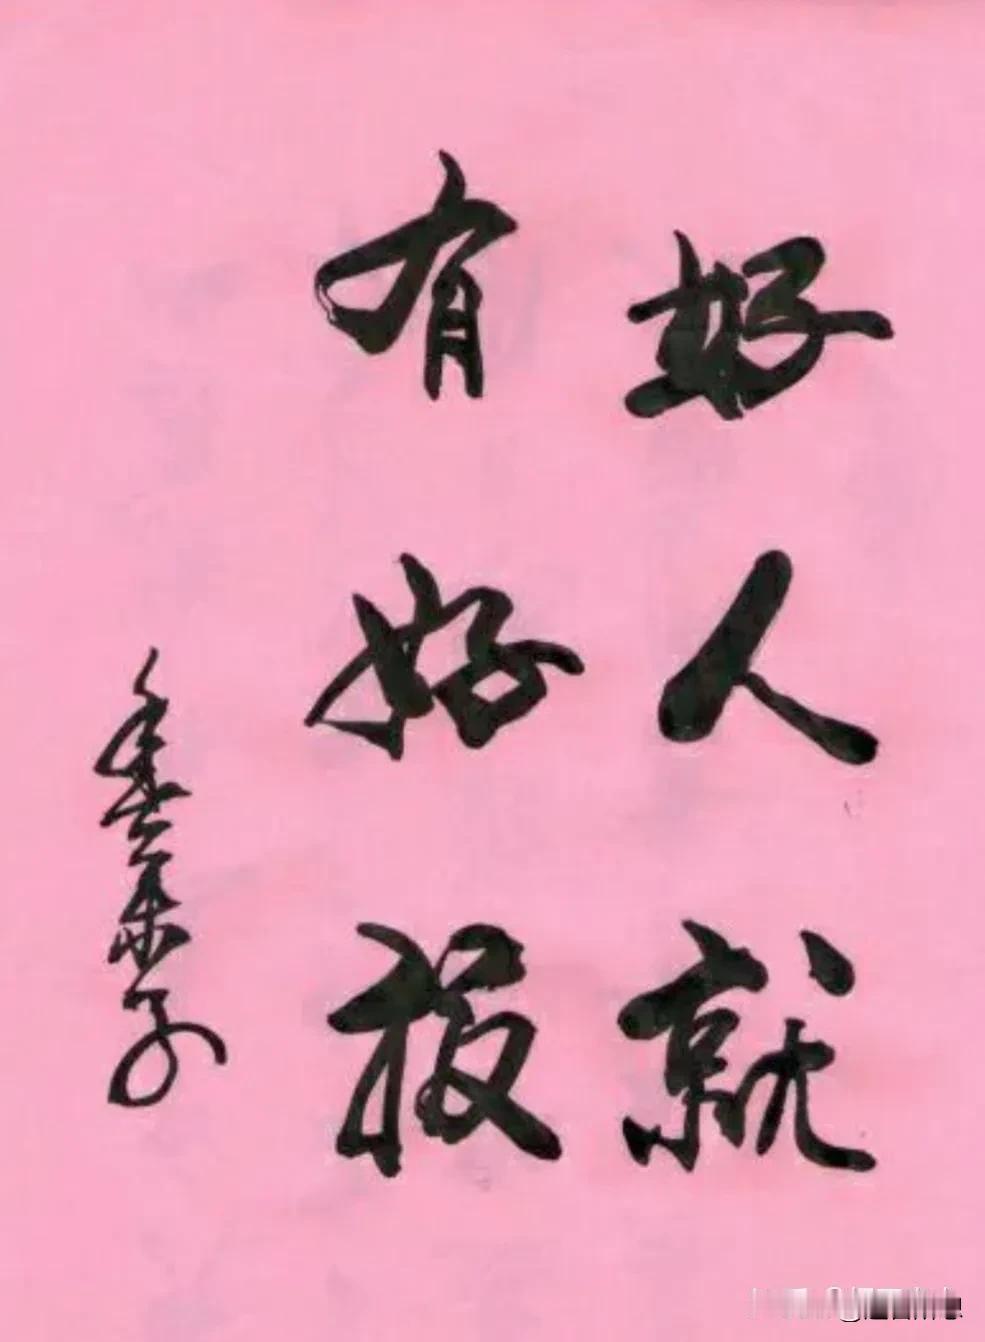 好人就
有好报
子